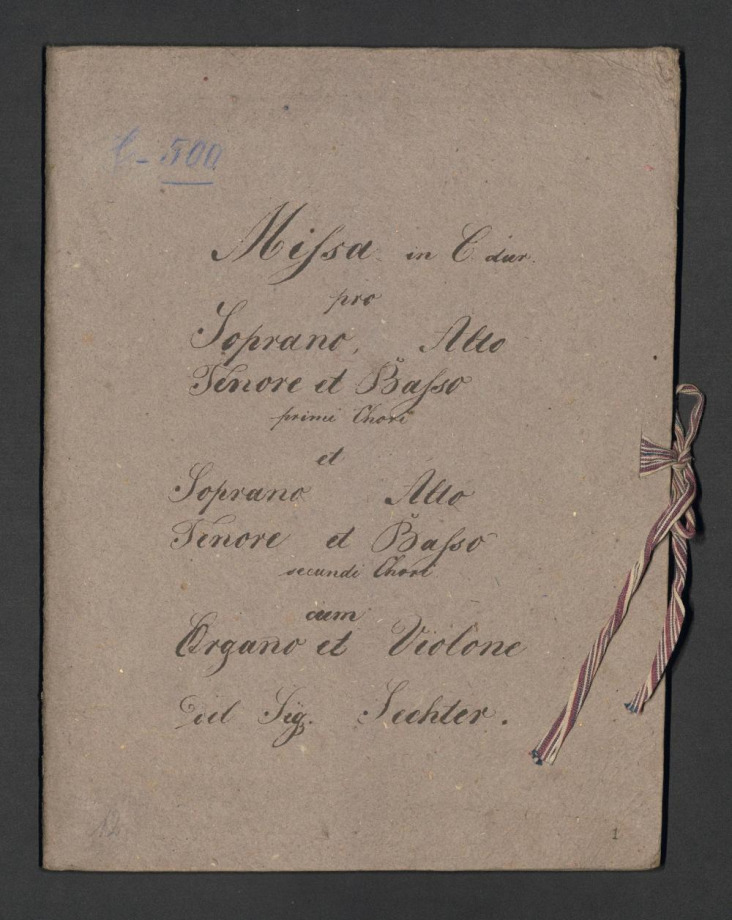 C-500
Missa in C dur.
pro
Soprano, Alto
Tenore et Baſso
primi Chori
et
Soprano Alto
Tenore et Baſso
secundi Chori
cum
Organo et Violone
Del Sig. Sechter.
12
1